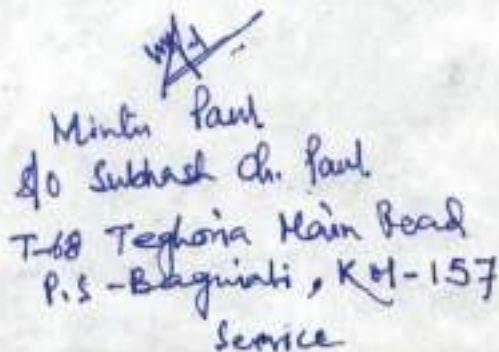 Mintu Paul
S/O Subhash Ch. Paul
T-68 Teghoria Main Road
P.S - Baguiati, Kol-157
Service